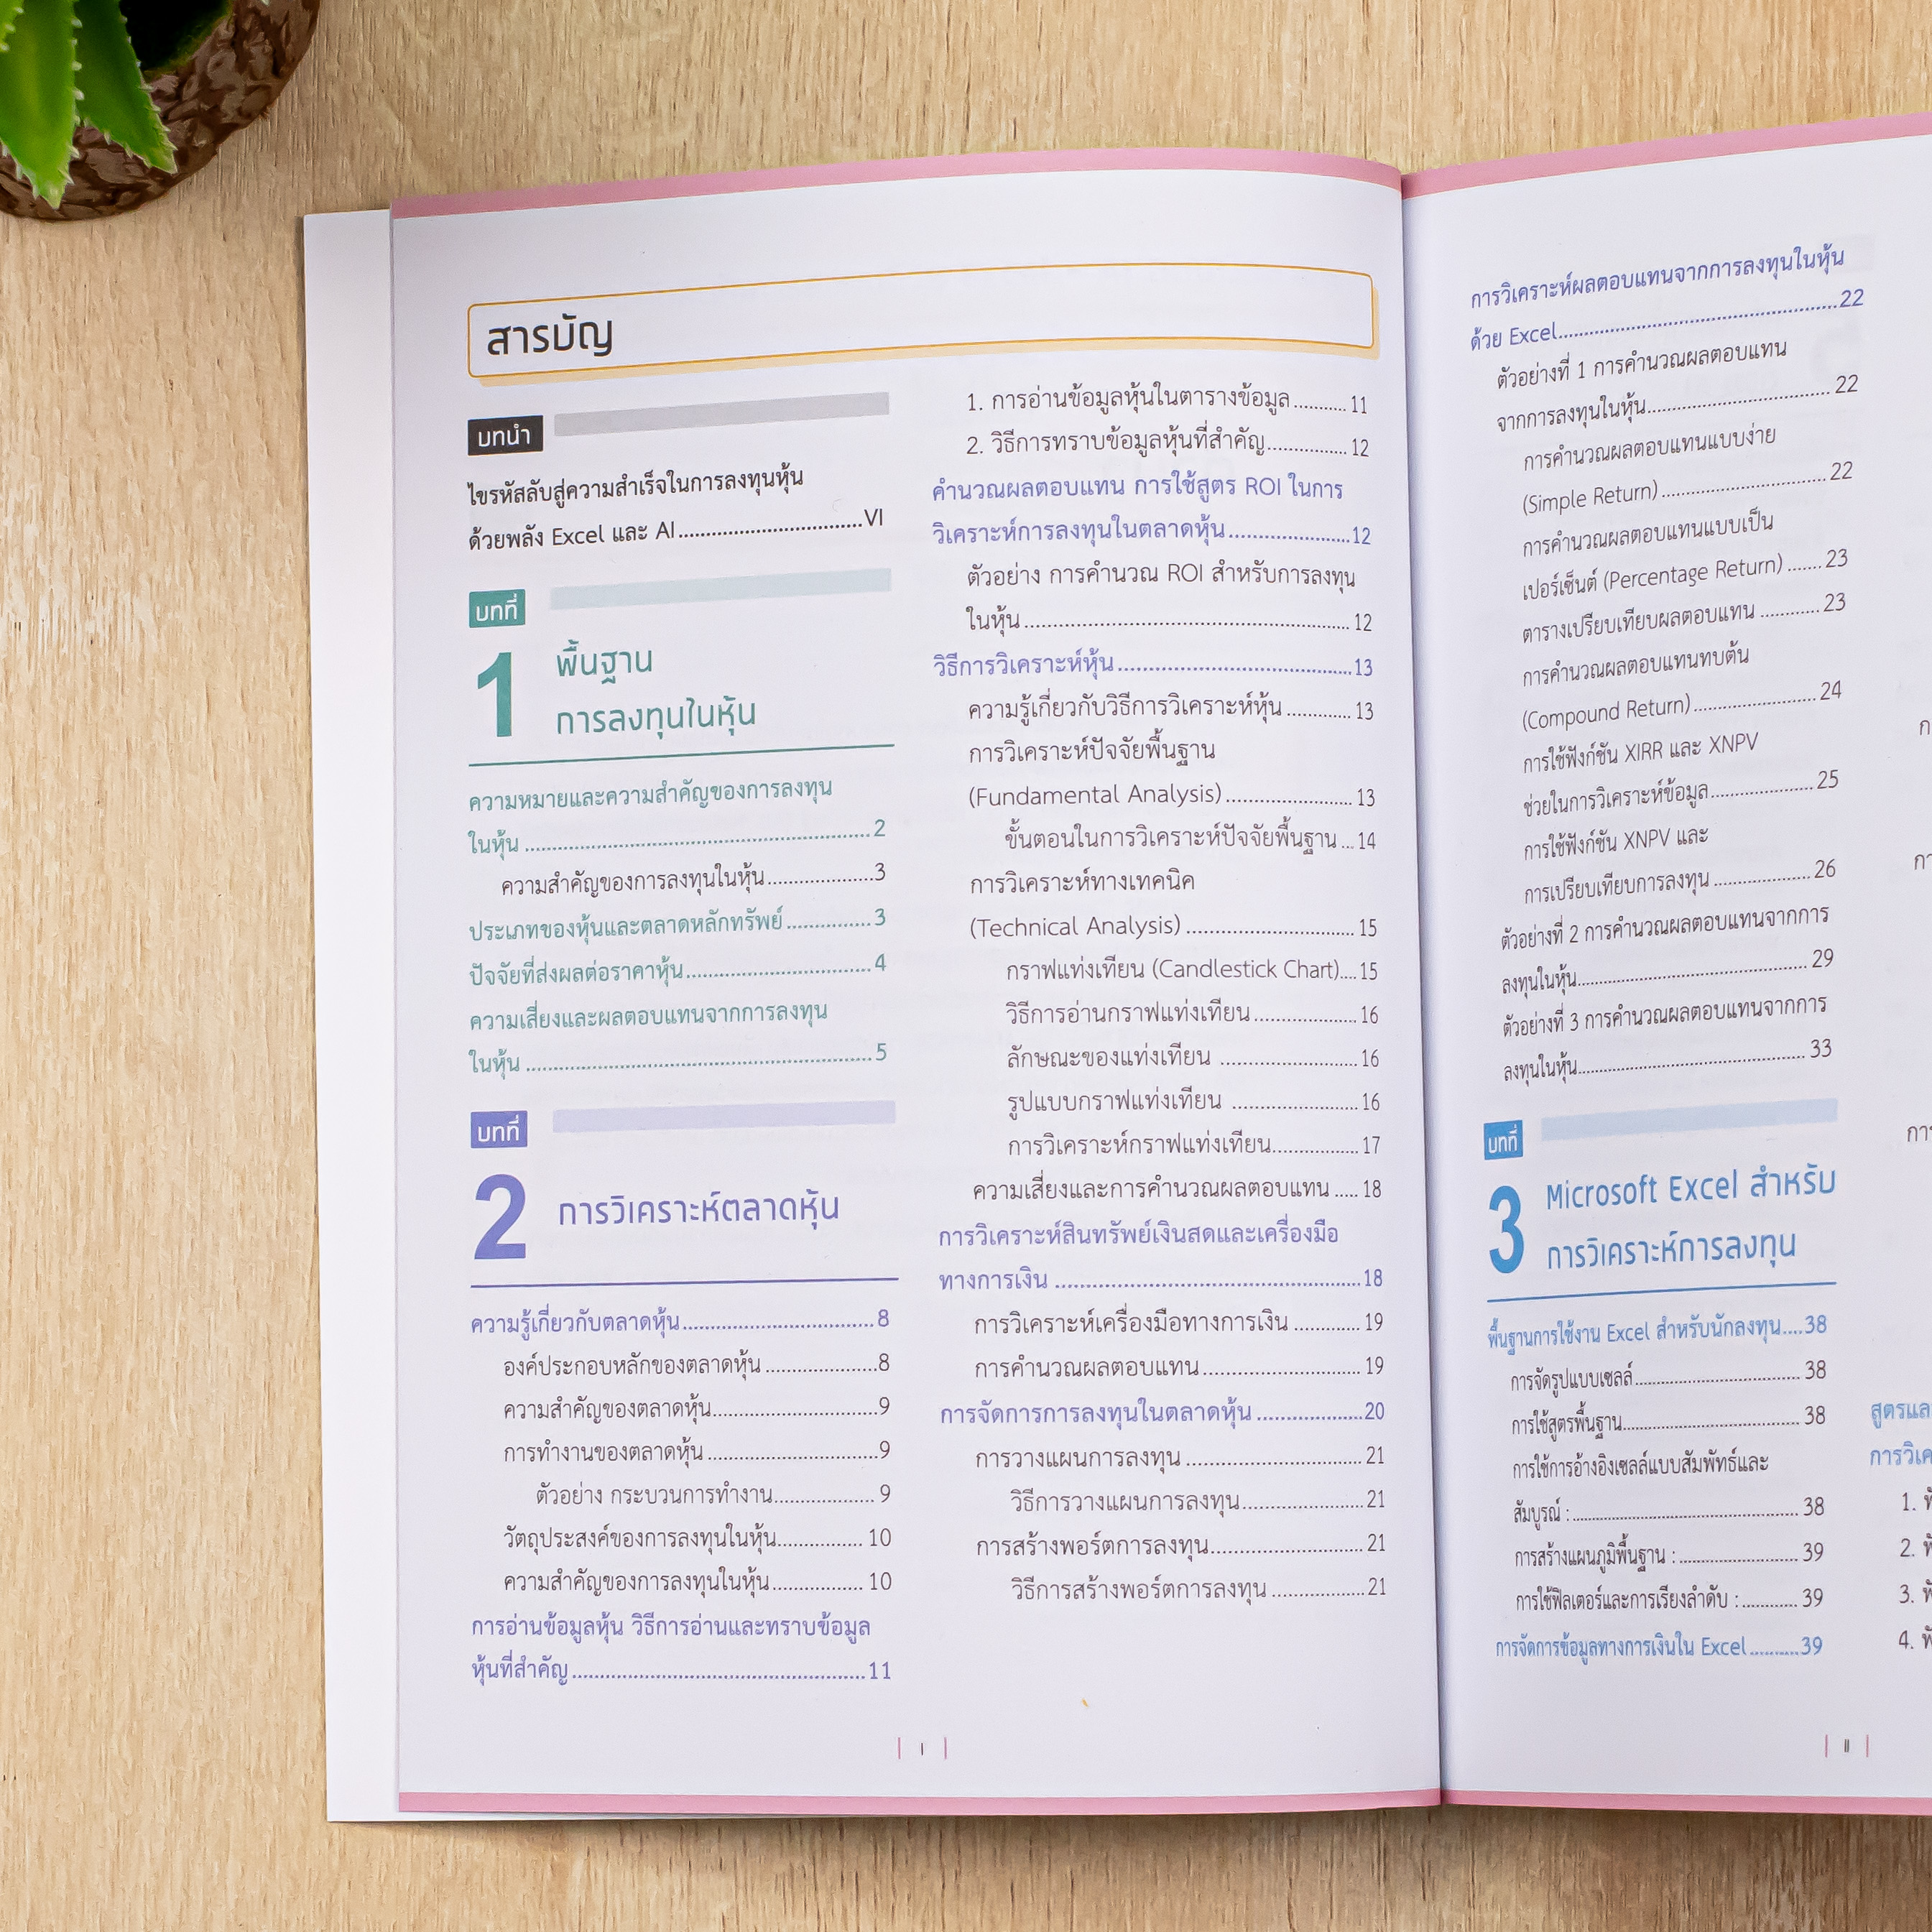 สารบัญ
บทนำ
ไขรหัสลับสู่ความสำเร็จในการลงทุนหุ้น
ด้วยพลัง Excel และ AI..............................VI
บทที่
1
พื้นฐาน
การลงทุนในหุ้น
ความหมายและความสำคัญของการลงทุน
ในหุ้น ..........................................................2
ความสำคัญของการลงทุนในหุ้น..................3
ประเภทของหุ้นและตลาดหลักทรัพย์..............3
ปัจจัยที่ส่งผลต่อราคาหุ้น...............................4
ความเสี่ยงและผลตอบแทนจากการลงทุน
ในหุ้น ..........................................................5
บทที่
2
การวิเคราะห์ตลาดหุ้น
ความรู้เกี่ยวกับตลาดหุ้น................................8
องค์ประกอบหลักของตลาดหุ้น...................8
ความสำคัญของตลาดหุ้น............................9
การทำงานของตลาดหุ้น.............................9
ตัวอย่าง กระบวนการทำงาน.................9
วัตถุประสงค์ของการลงทุนในหุ้น...............10
ความสำคัญของการลงทุนในหุ้น................10
การอ่านข้อมูลหุ้น วิธีการอ่านและทราบข้อมูล
หุ้นที่สำคัญ.................................................11
1. การอ่านข้อมูลหุ้นในตารางข้อมูล..........11
2. วิธีการทราบข้อมูลหุ้นที่สำคัญ...............12
คำนวณผลตอบแทน การใช้สูตร ROI ในการ
วิเคราะห์การลงทุนในตลาดหุ้น....................12
ตัวอย่าง การคำนวณ ROI สำหรับการลงทุน
ในหุ้น......................................................12
วิธีการวิเคราะห์หุ้น.......................................13
ความรู้เกี่ยวกับวิธีการวิเคราะห์หุ้น...........13
การวิเคราะห์ปัจจัยพื้นฐาน
(Fundamental Analysis).....................13
ขั้นตอนในการวิเคราะห์ปัจจัยพื้นฐาน...14
การวิเคราะห์ทางเทคนิค
(Technical Analysis)............................15
กราฟแท่งเทียน (Candlestick Chart)....15
วิธีการอ่านกราฟแท่งเทียน.................16
ลักษณะของแท่งเทียน.......................16
รูปแบบกราฟแท่งเทียน.....................16
การวิเคราะห์กราฟแท่งเทียน..............17
ความเสี่ยงและการคำนวณผลตอบแทน.....18
การวิเคราะห์สินทรัพย์เงินสดและเครื่องมือ
ทางการเงิน ..................................................18
การวิเคราะห์เครื่องมือทางการเงิน...........19
การคำนวณผลตอบแทน...........................19
การจัดการการลงทุนในตลาดหุ้น..................20
การวางแผนการลงทุน..............................21
วิธีการวางแผนการลงทุน....................21
การสร้างพอร์ตการลงทุน..........................21
วิธีการสร้างพอร์ตการลงทุน................21
| I |
การวิเคราะห์ผลตอบแทนจากการลงทุนในหุ้น
ด้วย Excel..................................................22
ตัวอย่างที่ 1 การคำนวณผลตอบแทน
จากการลงทุนในหุ้น................................22
การคำนวณผลตอบแทนแบบง่าย
(Simple Return).............................22
การคำนวณผลตอบแทนแบบเป็น
เปอร์เซ็นต์ (Percentage Return).......23
ตารางเปรียบเทียบผลตอบแทน............23
การคำนวณผลตอบแทนทบต้น
(Compound Return).....................24
การใช้ฟังก์ชัน XIRR และ XNPV
ช่วยในการวิเคราะห์ข้อมูล..................25
การใช้ฟังก์ชัน XNPV และ
การเปรียบเทียบการลงทุน..................26
ตัวอย่างที่ 2 การคำนวณผลตอบแทนจากการ
ลงทุนในหุ้น..........................................29
ตัวอย่างที่ 3 การคำนวณผลตอบแทนจากการ
ลงทุนในหุ้น..........................................33
บทที่
3
Microsoft Excel สำหรับ
การวิเคราะห์การลงทุน
พื้นฐานการใช้งาน Excel สำหรับนักลงทุน....38
การจัดรูปแบบเซลล์.................................38
การใช้สูตรพื้นฐาน...................................38
การใช้การอ้างอิงเซลล์แบบสัมพัทธ์และ
สัมบูรณ์ :................................................38
การสร้างแผนภูมิพื้นฐาน :........................39
การใช้ฟิลเตอร์และการเรียงลำดับ :...........39
การจัดการข้อมูลทางการเงินใน Excel..........39
| II |
1.
2.
3.
4.